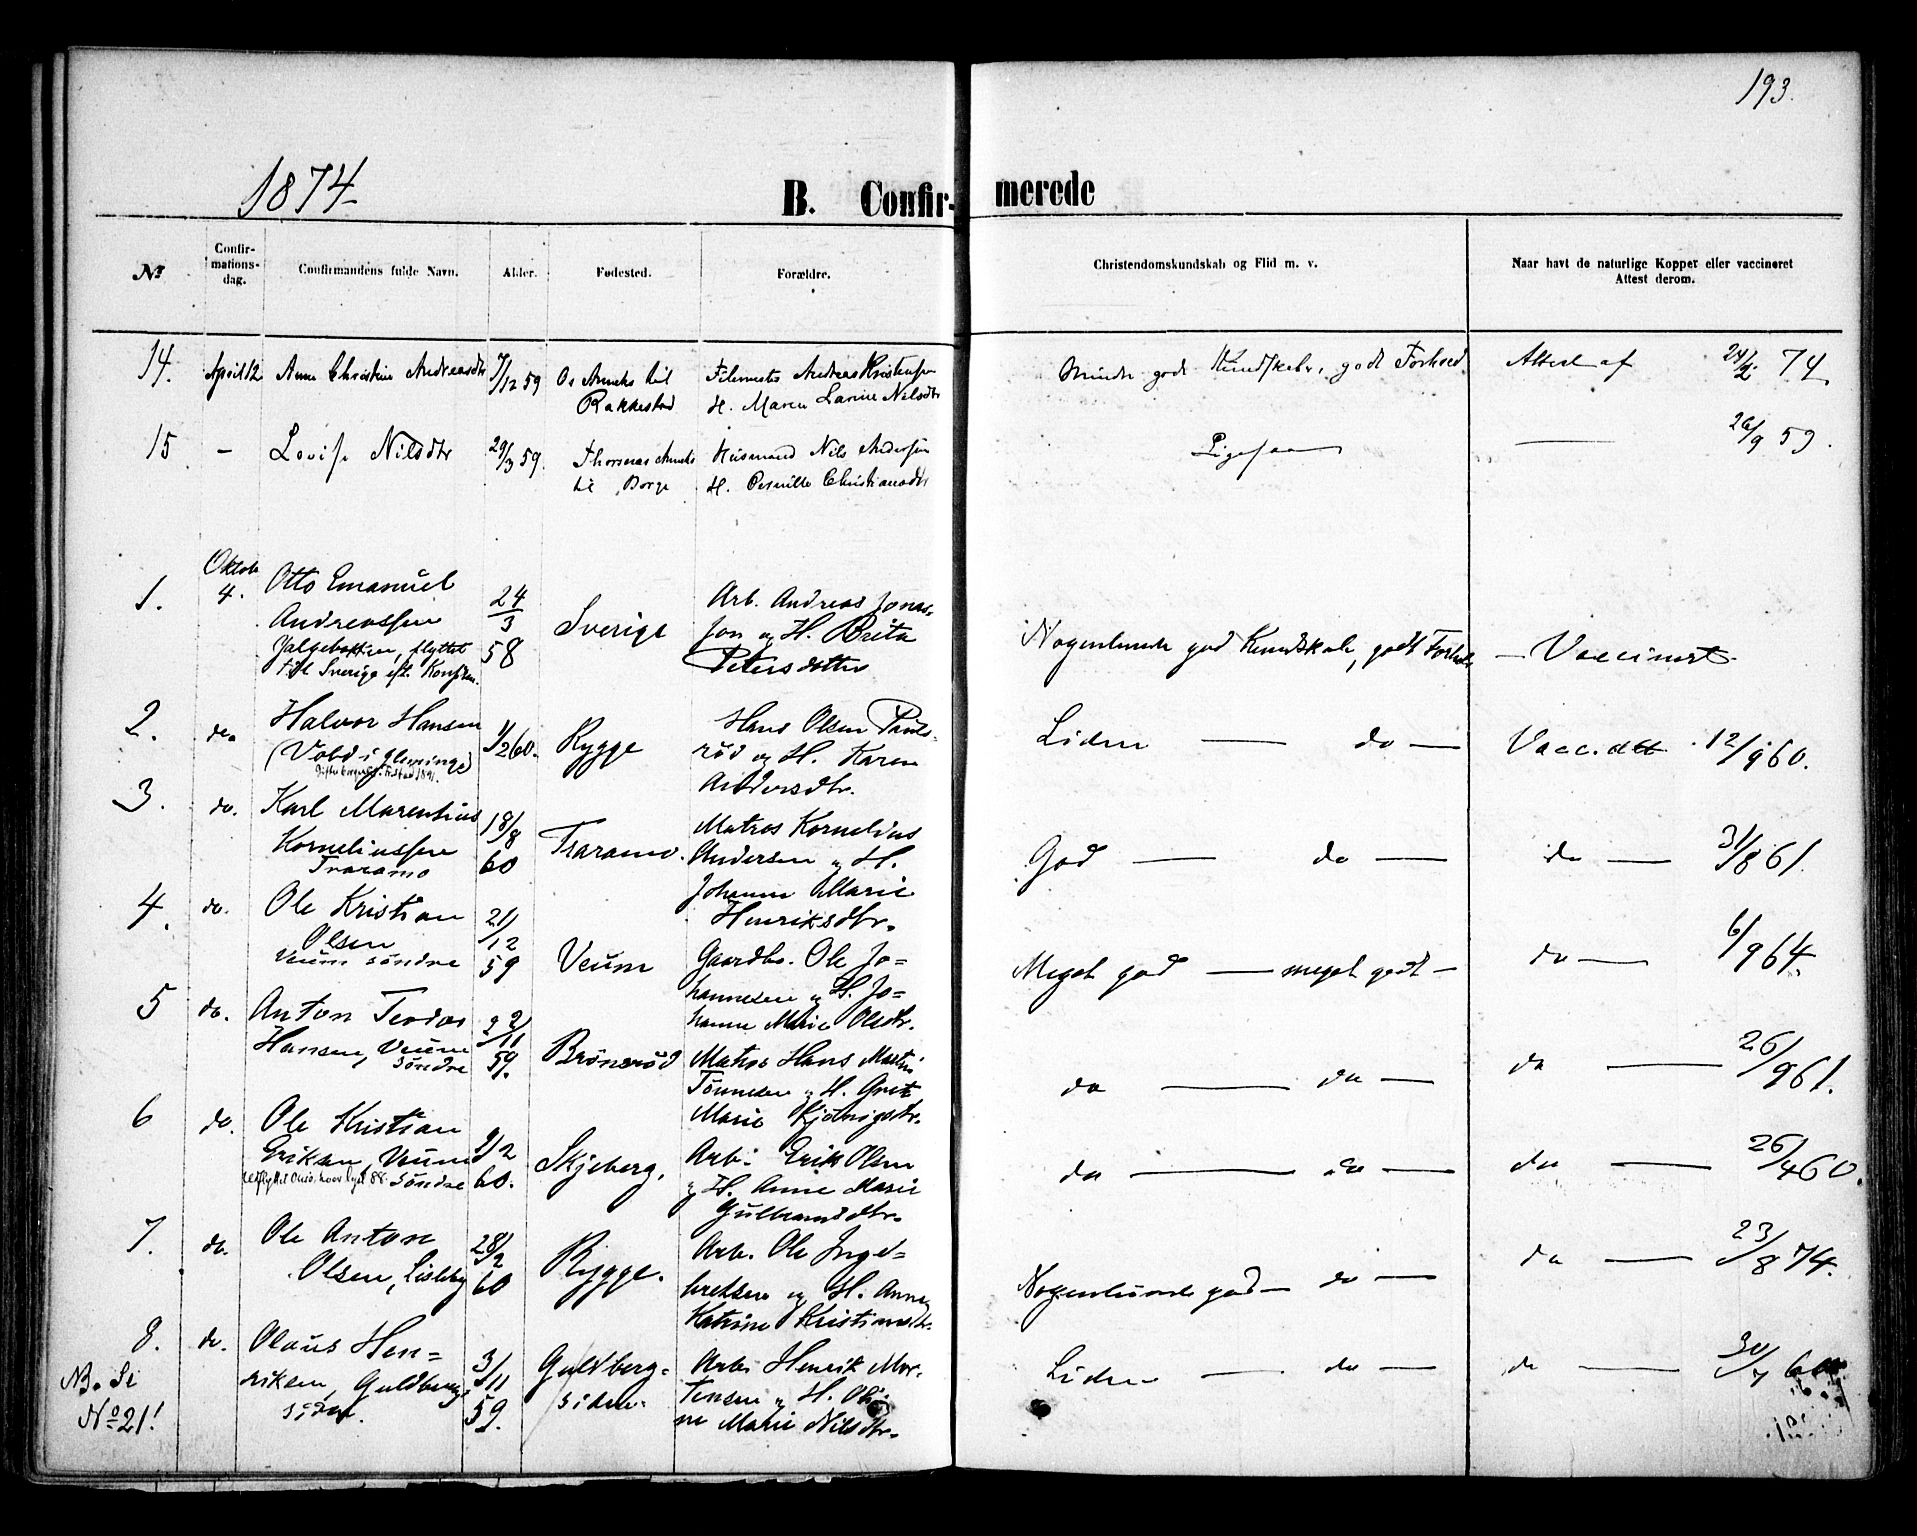 193.
1874
B. Confir- merede
No
Confir-
mations-
dag.
Confirmandens fulde Navn.
Alder.
Fødested.
Forældre.
Christendomskundskab og Flid m. v.
Naar havt de naturlige Kopper eller vaccineret
Attest derom.
14. April 12 Anne Christine Andreasdtr 7/12 59 Os Annex til Filemester Andreas Kristensen Mindre god Kundskab, godt Forhod Attest af 24/2 74
Rakkestad H. Maren Larine Nilsdtr
15. - Lovise Nilsdtr 29/3 59. Annex Husmand Nils Andersen Ligesaa — 26/9 59.
til Borge H. Pernille Christiansdtr
1. Oktob. 4. Otto Emanuel
Andreassen
flyttet
til Sverige eft. Konfirm.
24/3 58
Sverige
Arb. Andreas Jonas-
son og H. Brita
Petersdotter
Nogenlunde god Kundskab, godt Forhold — Vaccinert
2. do Halvor Hansen
(Vold i Glemminge)
1/2 60.
Rygge
Hans Olsen Pauls-
rød og H. Karen
Andersdtr.
Liden — do — Vacc. att 12/9 60.
3. do. Karl Marentius
Korneliussen
Traramo
18/8 60
Traramo.
Matros Kornelius
Andersen og H.
Johanne Marie
Henriksdtr.
God — do — do — 31/8 61.
4. do. Ole Kristian
Olsen
Veum søndre
21/12 59
Veum
Gaardbr. Ole Jo=
hannesen og H. Jo=
hanne Marie Olsdtr.
Meget god — meget godt — do — 6/9 64.
5 do. Anton Teodor
Hansen, Veum
Søndre
22/11 59.
Brønerød
Matros Hans Martin
Tønnesen og H. Grete
Marie
do — do — do — 26/9 61.
6 do. Ole Kristian
Eriksen, Veum
Søndre
9/2 60.
Skjeberg.
Arb. Erik Olsen
og H. Anne Marie
Gulbrandsdtr.
do — do — do — 26/4 60.
7. do. Ole Anton
Olsen, Lisleby
28/2 60
Rygge.
Arb. Ole Ingel=
bretsen og H. Anne
Katrine Kristiansdtr.
Nogenlunde god — do — do — 23/8 74.
8. do. Olaus Hen=
riksen, Guldbergs
siden.
3/11 59.
Guldberg=
siden.
Arb. Henrik Mor-
tensen og H. Oli-
ne Marie Nilsdtr.
Liden — do — do — 30/7
NB. Se
No 21!